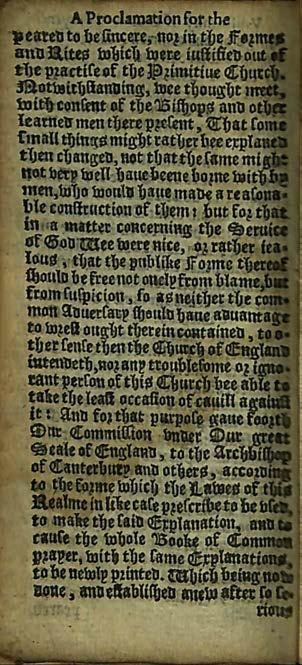 A Proclamation for the
peared to be sincere, nor in the Formes
and Rites which were iustified out of
the practise of the Primitiue Church.
Notwithstanding, wee thought meet,
with consent of the Bishops and other
learned men there present, That some
small things might rather bee explaned
then changed, not that the same might
not very well haue beene borne with by
men, who would haue made a reasona-
ble construction of them: but for that
in a matter concerning the Seruice
of God Wee were nice, or rather iea-
lous, that the publike Forme thereof
should be free not onely from blame, but
from suspicion, so as neither the com-
mon Aduersary should haue aduantage
to wrest ought therein contained, to o-
ther sense then the Church of England
intendeth, nor any troublesome or igno-
rant person of this Church bee able to
take the least occasion of cauill against
it: And for that purpose gaue foorth
Our Commission vnder Our great
Seale of England, to the Archbishop
of Canterbury and others, according
to the forme which the Lawes of this
Realme in like case prescribe to be vsed,
to make the said Explanation, and to
cause the whole Booke of Common
prayer, with the same Explanations,
to be newly printed. Which being now
done, and established anew after so se-
rious